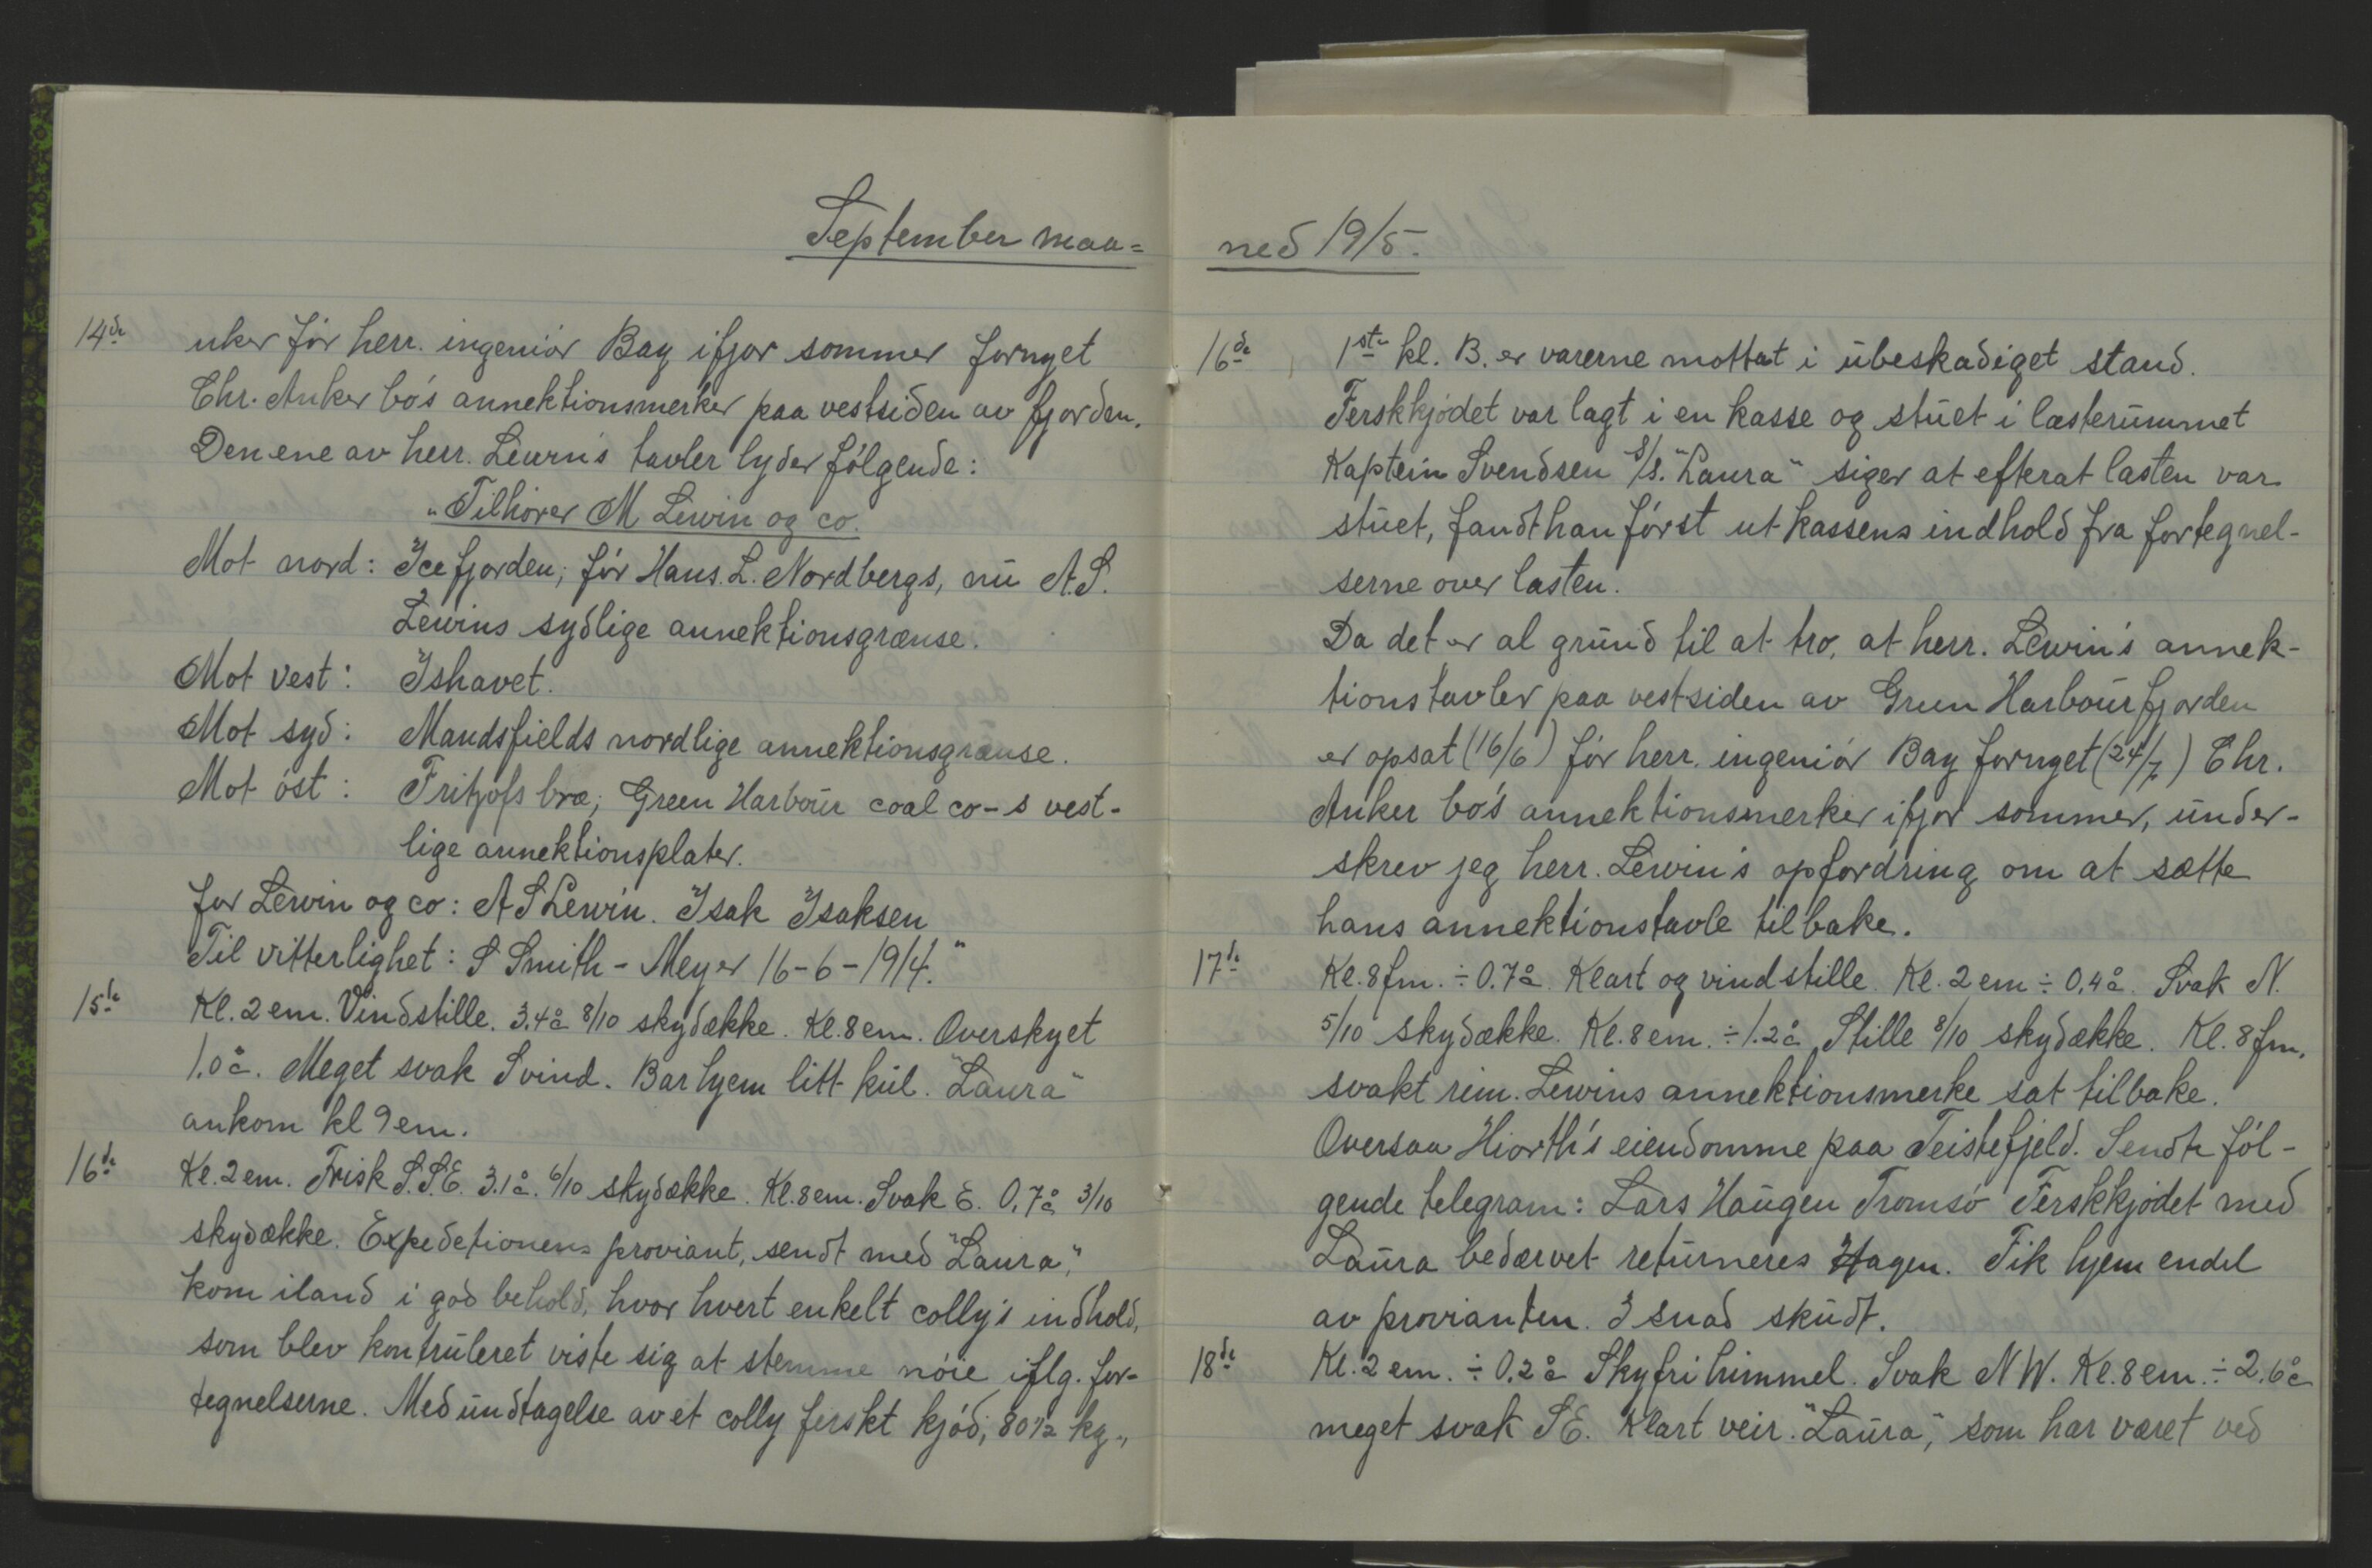 September maa=
14de uker før herr. ingeniør Bay ifjor sommer fornyet
Chr. Anker bo's annektionsmerker paa vestsiden av fjorden.
Den ene av herr. Lewin's tavler lyder følgende:
"Tilhører M Lewin og co.
Mot nord: Icefjorden; før Hans. L. Nordbergs, nu A.S.
Lewins sydlige annektionsgrænse.
Mot vest: Ishavet.
Mot syd: Mandsfields nordlige annektionsgrænse.
Mot øst: Fritjofs bræ; Green Harbour coal co-s vest-
lige annektionsplater.
for Lewin og co: A S Lewin. Isak Isaksen
Til vitterlighet: S Smith - Meyer 16-6-1914."
15de Kl. 2 em. Vindstille. 3.4° 8/10 skydække. Kl. 8 em. Overskyet
1.0°. Meget svak S vind. Bar hjem litt kul. "Laura"
ankom kl 9 em.
16de Kl. 2 em. Frisk S.S.E. 3.1°. 6/10 skydække. Kl. 8 em. Svak E. 0,7° 3/10
skydække. Expedetionens proviant, sendt med "Laura",
kom iland i god behold, hvor hvert enkelt colly's indhold,
som blev kontruleret viste sig at stemme nöie iflg. for-
tegnelserne. Med undtagelse av et colly ferskt kjød; 80 1/2 kg.,
ned 1915.
16de 1ste kl. B. er varerne mottat i ubeskadiget stand.
Ferskkjødet var lagt i en kasse og stuet i lasterummet
Kaptein Svendsen S/S. "Laura" siger at efterat lasten var
stuet, fandt han først ut kassens indhold fra fortegnel-
serne over lasten.
Da det er al grund til at tro, at herr. Lewin's annek-
tionstavler paa vestsiden av Green Harbour fjorden
er opsat (16/6) før herr. ingeniør Bay fornyet (24/7) Chr.
Anker bo's annektionsmerker ifjor sommer, under-
skrev jeg herr. Lewin's opfordring om at sætte
hans annektionstavle tilbake.
17de Kl. 8 fm. ÷ 0.7° Klart og vindstille. Kl. 2 em ÷ 0,4°. Svak N.
5/10 skydække. Kl. 8 em. ÷ 1.2° Stille 8/10 skydække. Kl. 8 fm.
svakt rim. Lewins annektionsmerke sat tilbake.
Oversaa Hiorth's eiendomme paa Teistefjeld. Sendte föl-
gende telegram: Lars Haugen Tromsö Ferskkjødet med
Laura bedærvet returneres Hagen. Fik hjem endel
av provianten. 3 snad skudt.
18de Kl. 2 em. ÷ 0.2° Skyfri himmel. Svak NW. Kl. 8 em. ÷ 2.6°
meget svak SE. Klart veir. "Laura", som har været ved